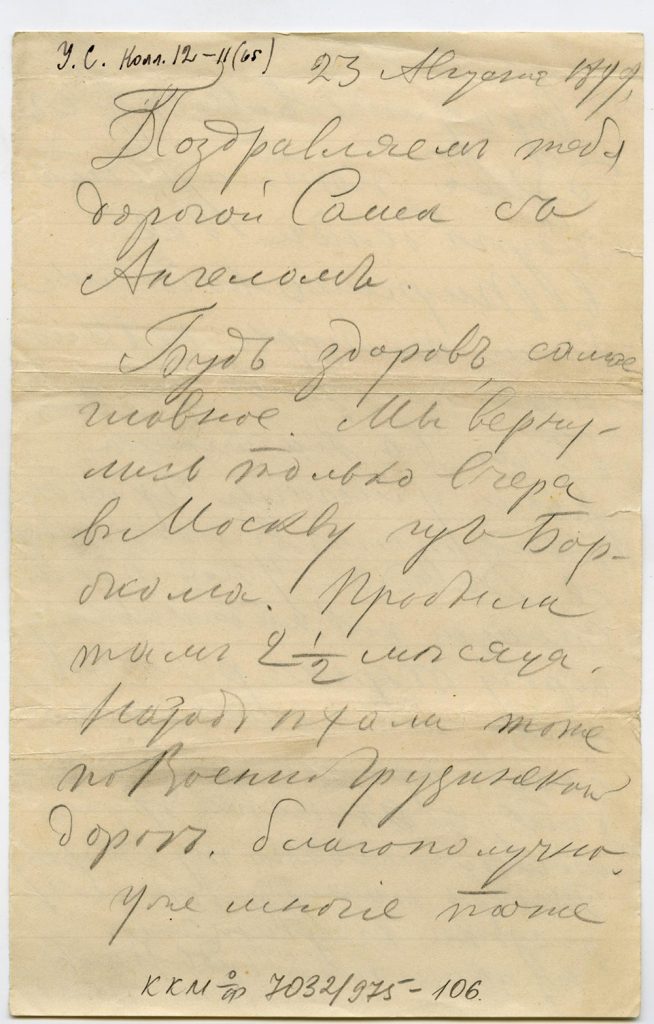 У.С. Колл. 12-11(65)
23 Августа 1899,
Поздравляемъ тебя
дорогой Саша съ
Ангеломъ.
Будь здоровъ, самое
главное. Мы верну-
лись только вчера
въ Москву изъ Бор-
жома. Пробыли
тамъ 2 1/2 мѣсяца.
Назадъ ѣхали тоже
по Военно Грузинской
дорогѣ, благополучно.
Уже многіе тоже
ККМ оф 7032/975-106.